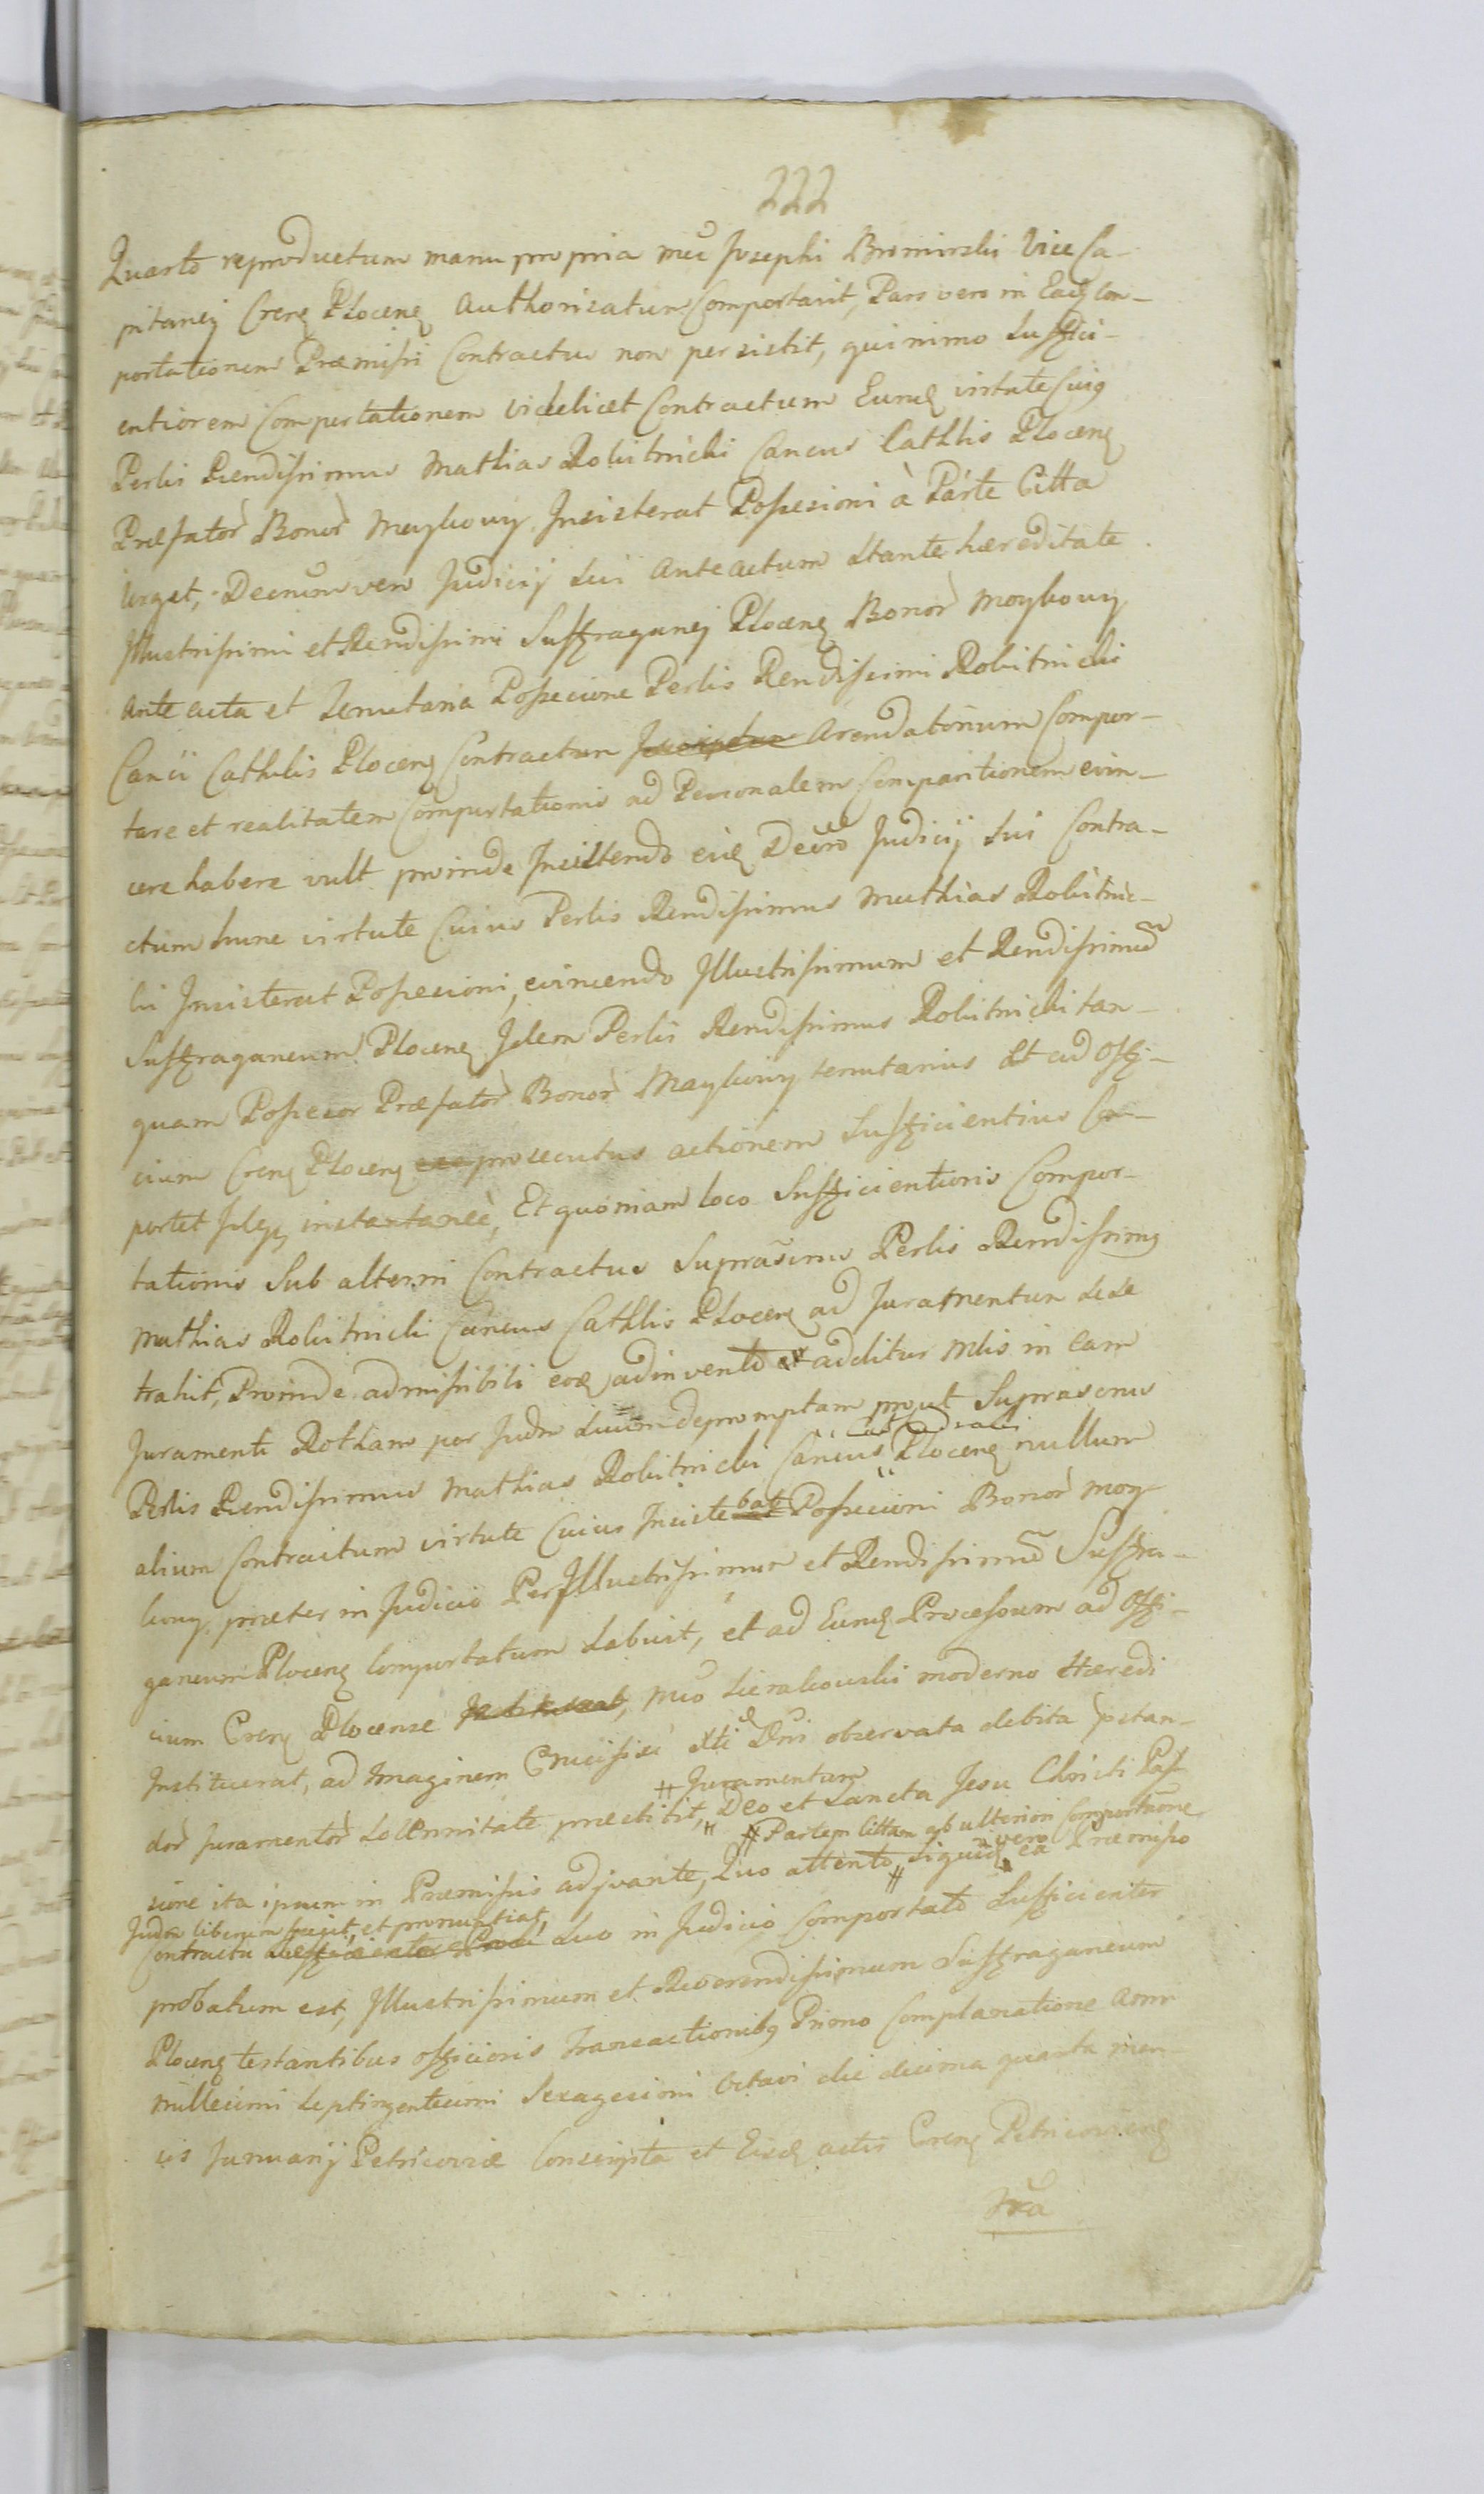 222
Quarto reproductum manu propria mei Josephi Bromirski Vice Ca-
pitanei Crens Plocens Authorisatum Comportavit, Pars vero in Eadem Com-
portatione Præmissi Contractus non persistit, quinimo Suffici-
entiorem Comportationem videlicet Contractum Eund virtute Cuig
Perlis Rendissimus Mathias Rokitnicki Cancus Cathlis Plocens
Præfator Bonor Maykowy Insisterat Possesioni à Parte Citta
Urget, Decretum vero Judicij sui Anteactum stante hæreditate
Illustrissimi et Rendissimi Suffraganej Plocens Bonor Moykowy
ante acta et Tenutaria Possesione Perlis Rendissimi Rokitnicki
Cancii Cathlis Plocens Contractum Arendatorium Compor-
tare et realitatem Comportationis ad Personalem Comparitionem evin-
cere habere vult proinde Insistendo eid Decro Judicij sui Contra-
ctum hunc virtute Cuius Perlis Rendissimus Mathias Rokitnic-
ki Insisterat Possesioni, evincendo Illustrissimum et Rendissimum
Suffraganeum Plocens Idem Perlis Rendissimus Rokitnicki tan-
quam Possesor Præfator Bonor Maykowy tenutarius Et ad Offi-
cium Crens Plocens prosecutus actionem Sufficientius Com-
portet instantaneè, Et quoniam loco Sufficientioris Compor-
tationis Sub alterni Contractus Suprascrius Perlis Rendissimg
Mathias Rokitnicki Cancus Cathlis Plocens ad Juramentum sese
trahit, Proinde admissibili eod adinvento additur Mlis in eam
Juramenti Rotham per Judm suum depromptam prout Suprascrius
Perlis Rendissimus Mathias Rokitnicki Cancus Cathedralis Plocens nullum
alium Contractum virtute Cuius Insistebat Possesioni Bonor Moy
kowy, præter in Judicio Per Illustrissimum et Rendissimum Suffra-
ganeum Plocens Comportatum habuit, et ad Eund Processum ad Offi-
cium Crens Plocense Mco Sierakowski moderno Hæredi
Instituerat, ad Imaginem Crucifixi Xti Dni observata debita pstan-
dor Juramentor Solennitate præstitit, # Juramentum Deo et Sancta Jesu Christi Pas-
sione ita ipsum in Præmissis adjuvante, Quo attento # Partem Cittam ab ulteriori Comportatione
Judm liberum facit, et pronuntiat, siquid vero ea Præmisso
Contractu Suo in Judicio Comportato Sufficienter
probatum est, Illustrissimum et Reverendissimum Suffraganeum
Plocens testantibus officiosis Transactionibg Primo Complanatione Anni
Millesimi Septingentesimi Sexagesimi Octavi die decima quarta men
sis Januarij Petricoviæ Conscripta et Eisd actis Crens Petricoviens